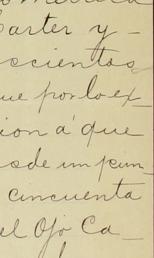 Carter y -
scientos
que por lo ex-
ion á que
sde un pun-
cincuenta
el Ojo Ca-